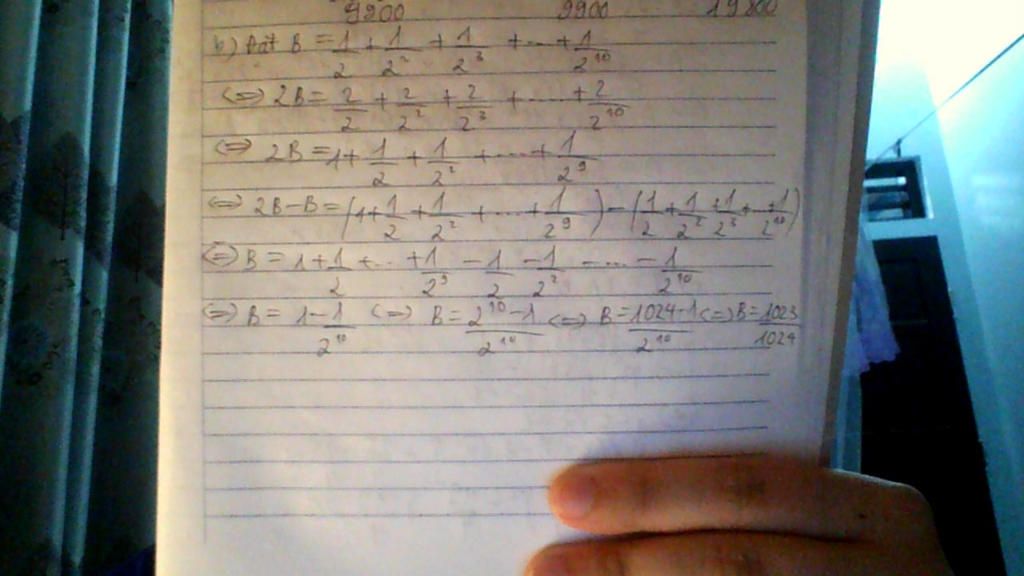 9900 9900 19800
b) Đặt B = 1/2 + 1/2² + 1/2³ + ... + 1/2¹⁰
<=> 2B = 2/2 + 2/2² + 2/2³ + ... + 2/2¹⁰
<=> 2B = 1 + 1/2 + 1/2² + ... + 1/2⁹
<=> 2B - B = (1 + 1/2 + 1/2² + ... + 1/2⁹) - (1/2 + 1/2² + 1/2³ + ... + 1/2¹⁰)
<=> B = 1 + 1/2 + ... + 1/2⁹ - 1/2 - 1/2² - ... - 1/2¹⁰
<=> B = 1 - 1/2¹⁰ <=> B = (2¹⁰ - 1)/2¹⁰ <=> B = (1024 - 1)/2¹⁰ <=> B = 1023/1024